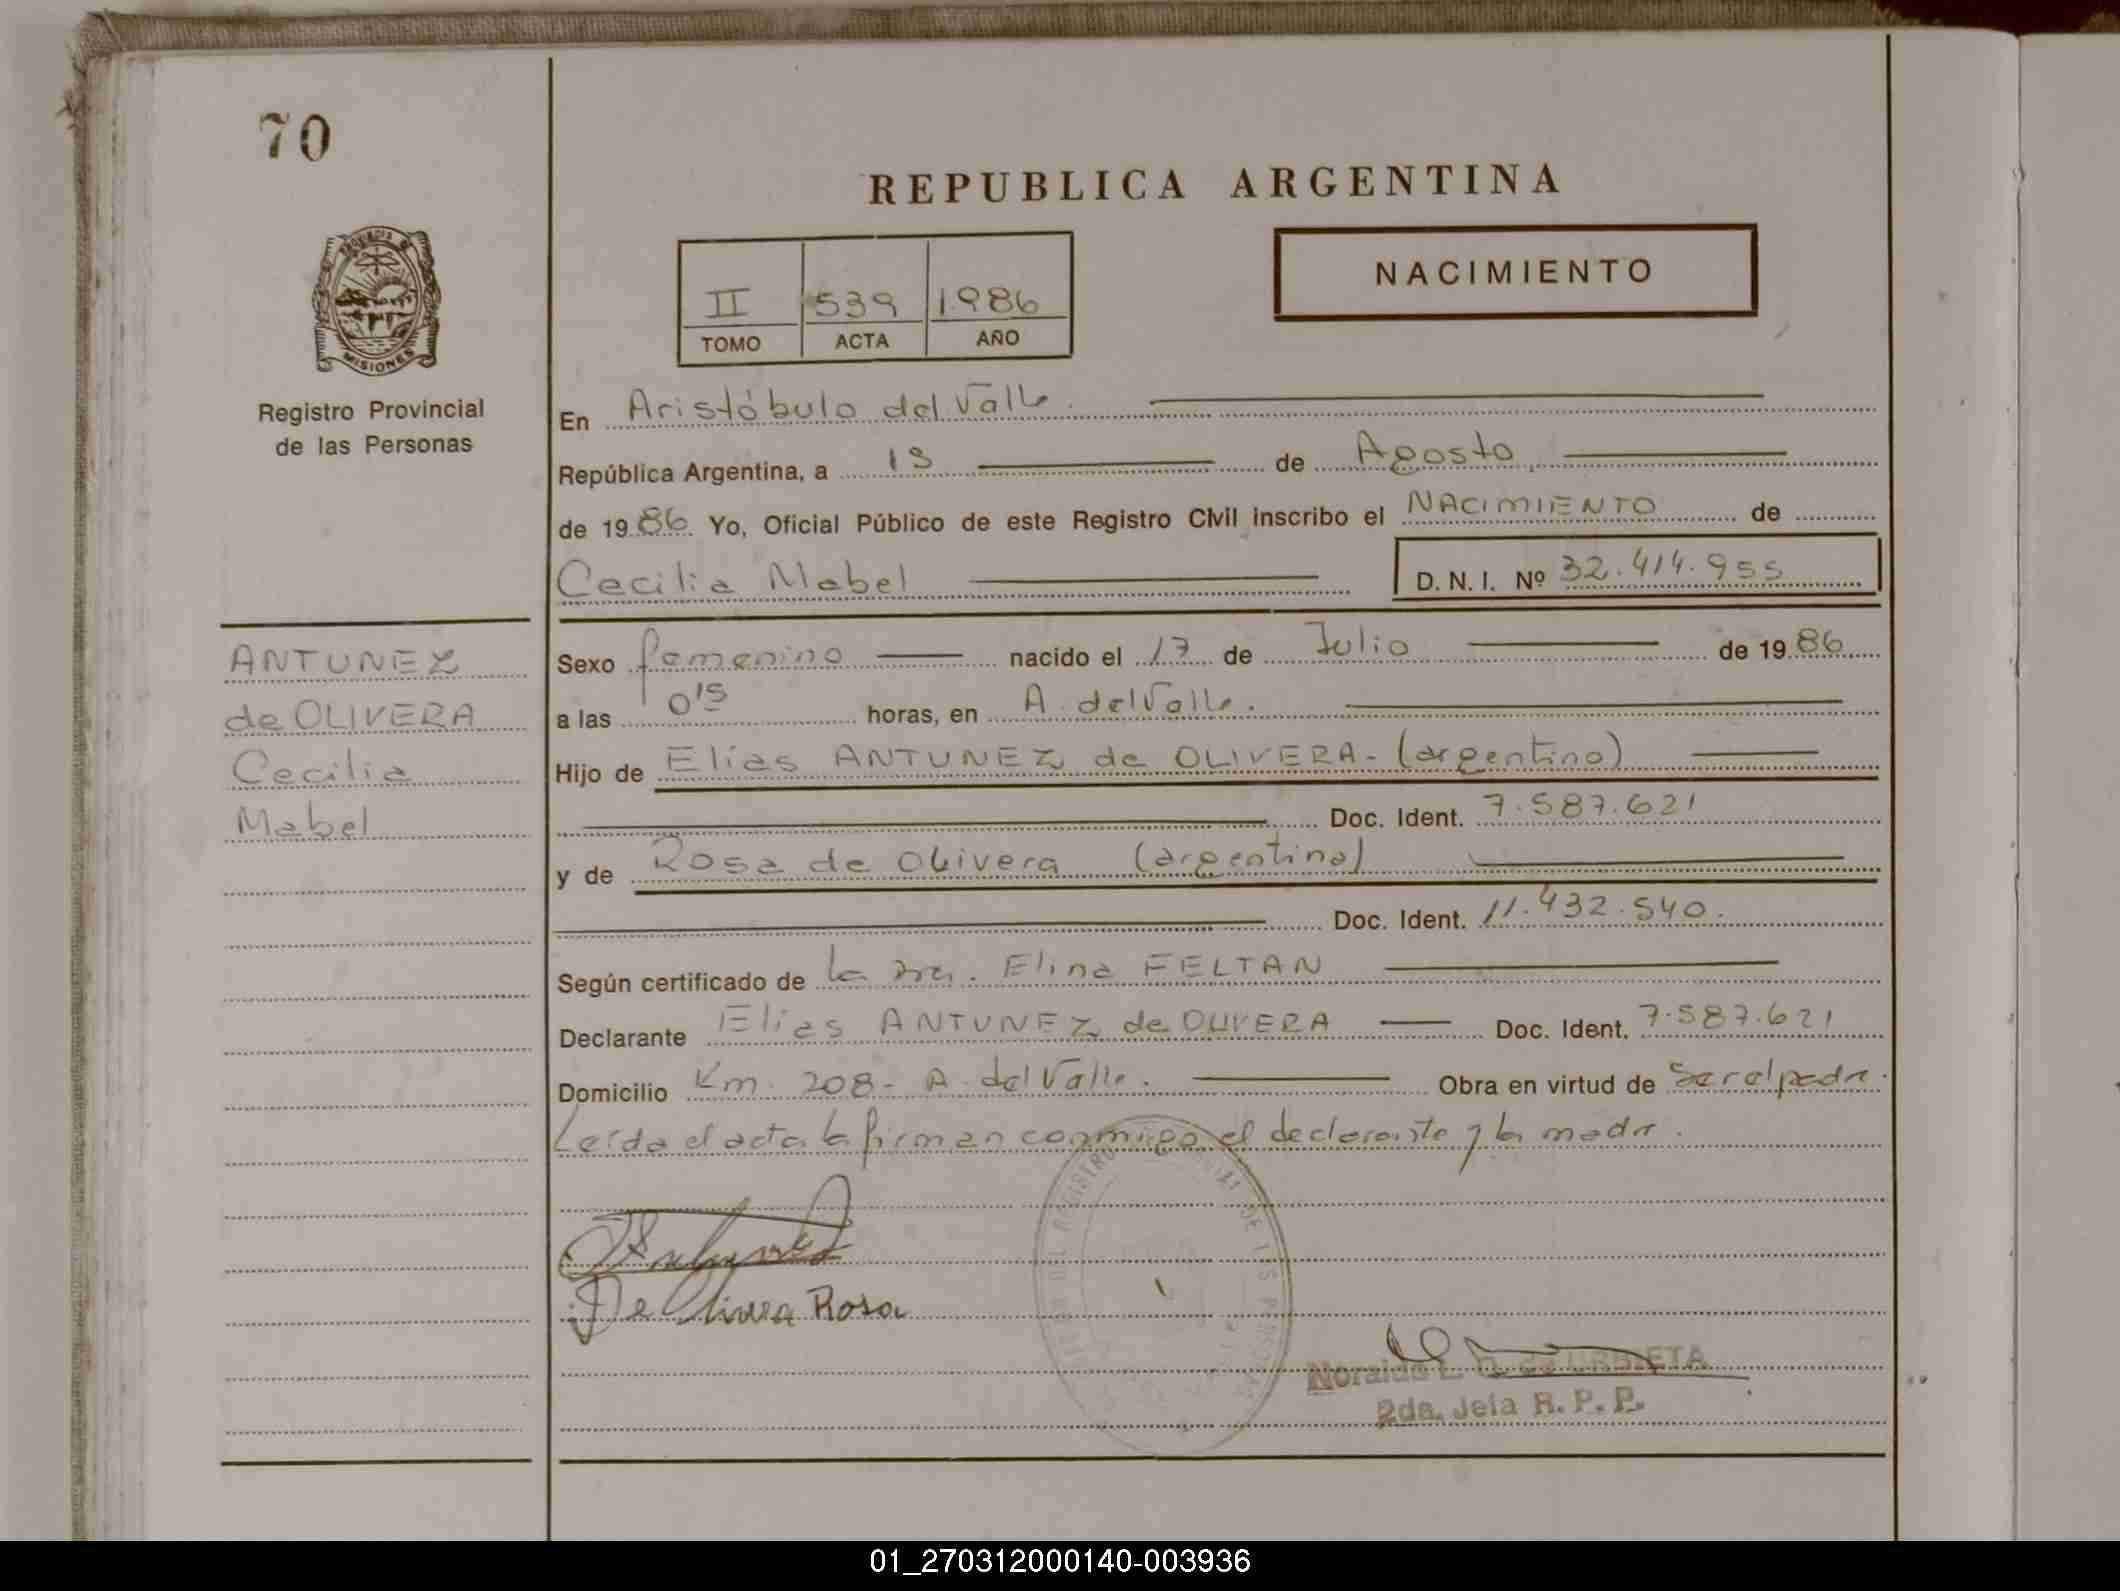 70
PROVINCIA DE
MISIONES
Registro Provincial
de las Personas
ANTUNEZ
de OLIVERA
Cecilia
Mabel
REPUBLICA ARGENTINA
II 539 1.986
TOMO ACTA AÑO
NACIMIENTO
En Aristóbulo del Valle.
República Argentina, a 13 de Agosto
de 1986 Yo, Oficial Público de este Registro Civil inscribo el NACIMIENTO de
Cecilia Mabel D. N. I. Nº 32.414.955
Sexo femenino nacido el 17 de Julio de 1986
a las 0'15 horas, en A. del Valle.
Hijo de Elías ANTUNEZ de OLIVERA- (argentino)
Doc. Ident. 7.587.621
y de Rosa de Olivera (argentina)
Doc. Ident. 11.432.540.
Según certificado de la Elina FELTAN
Declarante Elías ANTUNEZ de OLIVERA Doc. Ident. 7.587.621
Domicilio Km. 208- A. del Valle. Obra en virtud de Ser el padre.
Leída el acta la firman conmigo el declarante y la madre.
De Olivera Rosa
REGISTRO DE LAS
Noraide L. de URBIETA
2da. Jefa R. P. P.
01_270312000140-003936